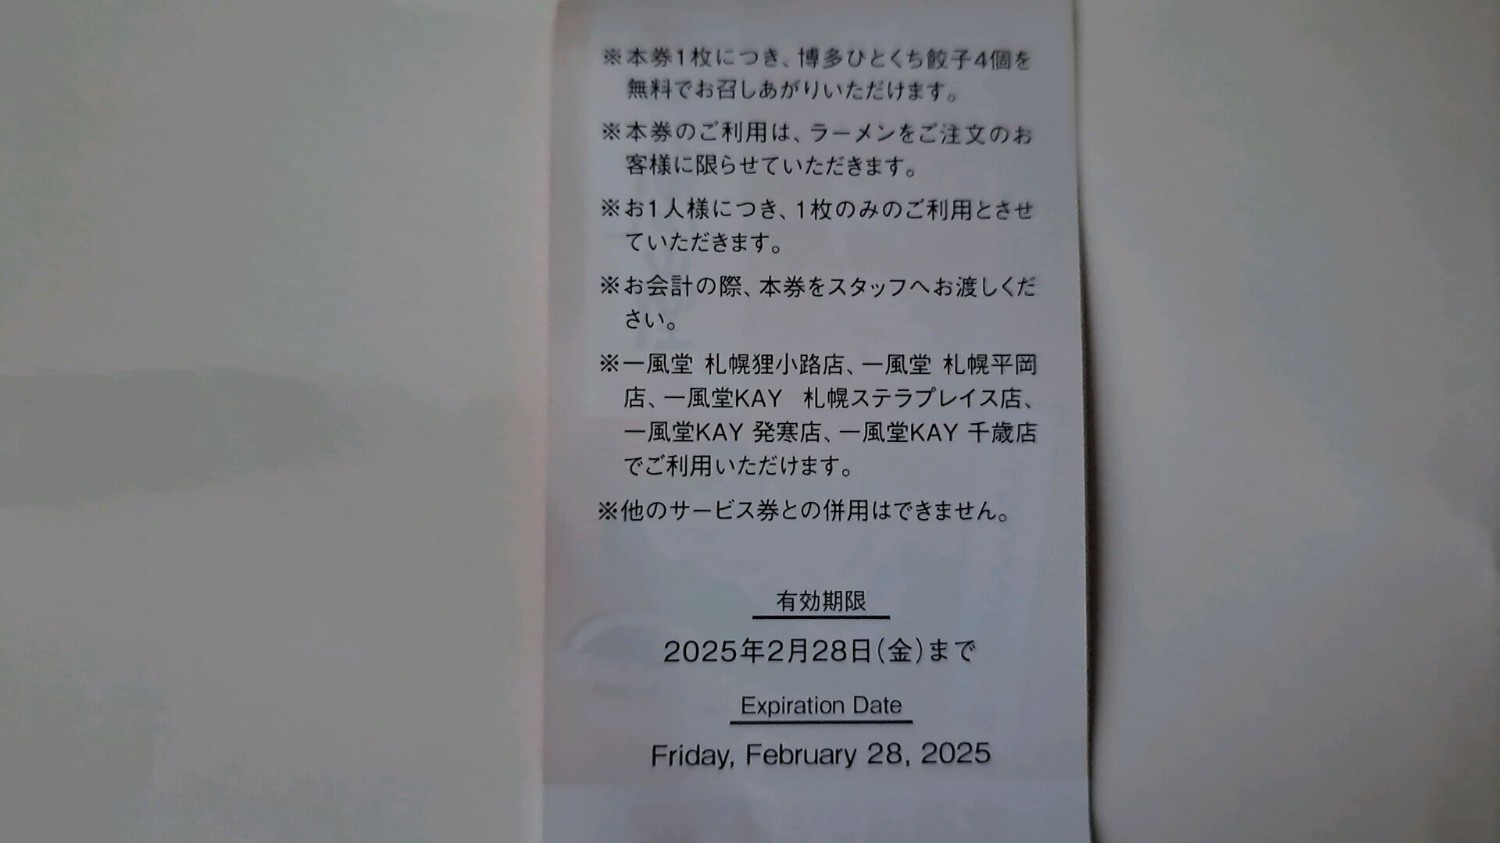 ※本券1枚につき、博多ひとくち餃子4個を
無料でお召しあがりいただけます。
※本券のご利用は、ラーメンをご注文のお
客様に限らせていただきます。
※お1人様につき、1枚のみのご利用とさせ
ていただきます。
※お会計の際、本券をスタッフへお渡しくだ
さい。
※一風堂 札幌狸小路店、一風堂 札幌平岡
店、一風堂KAY 札幌ステラプレイス店、
一風堂KAY 発寒店、一風堂KAY 千歳店
でご利用いただけます。
※他のサービス券との併用はできません。
有効期限
2025年2月28日(金)まで
Expiration Date
Friday, February 28, 2025